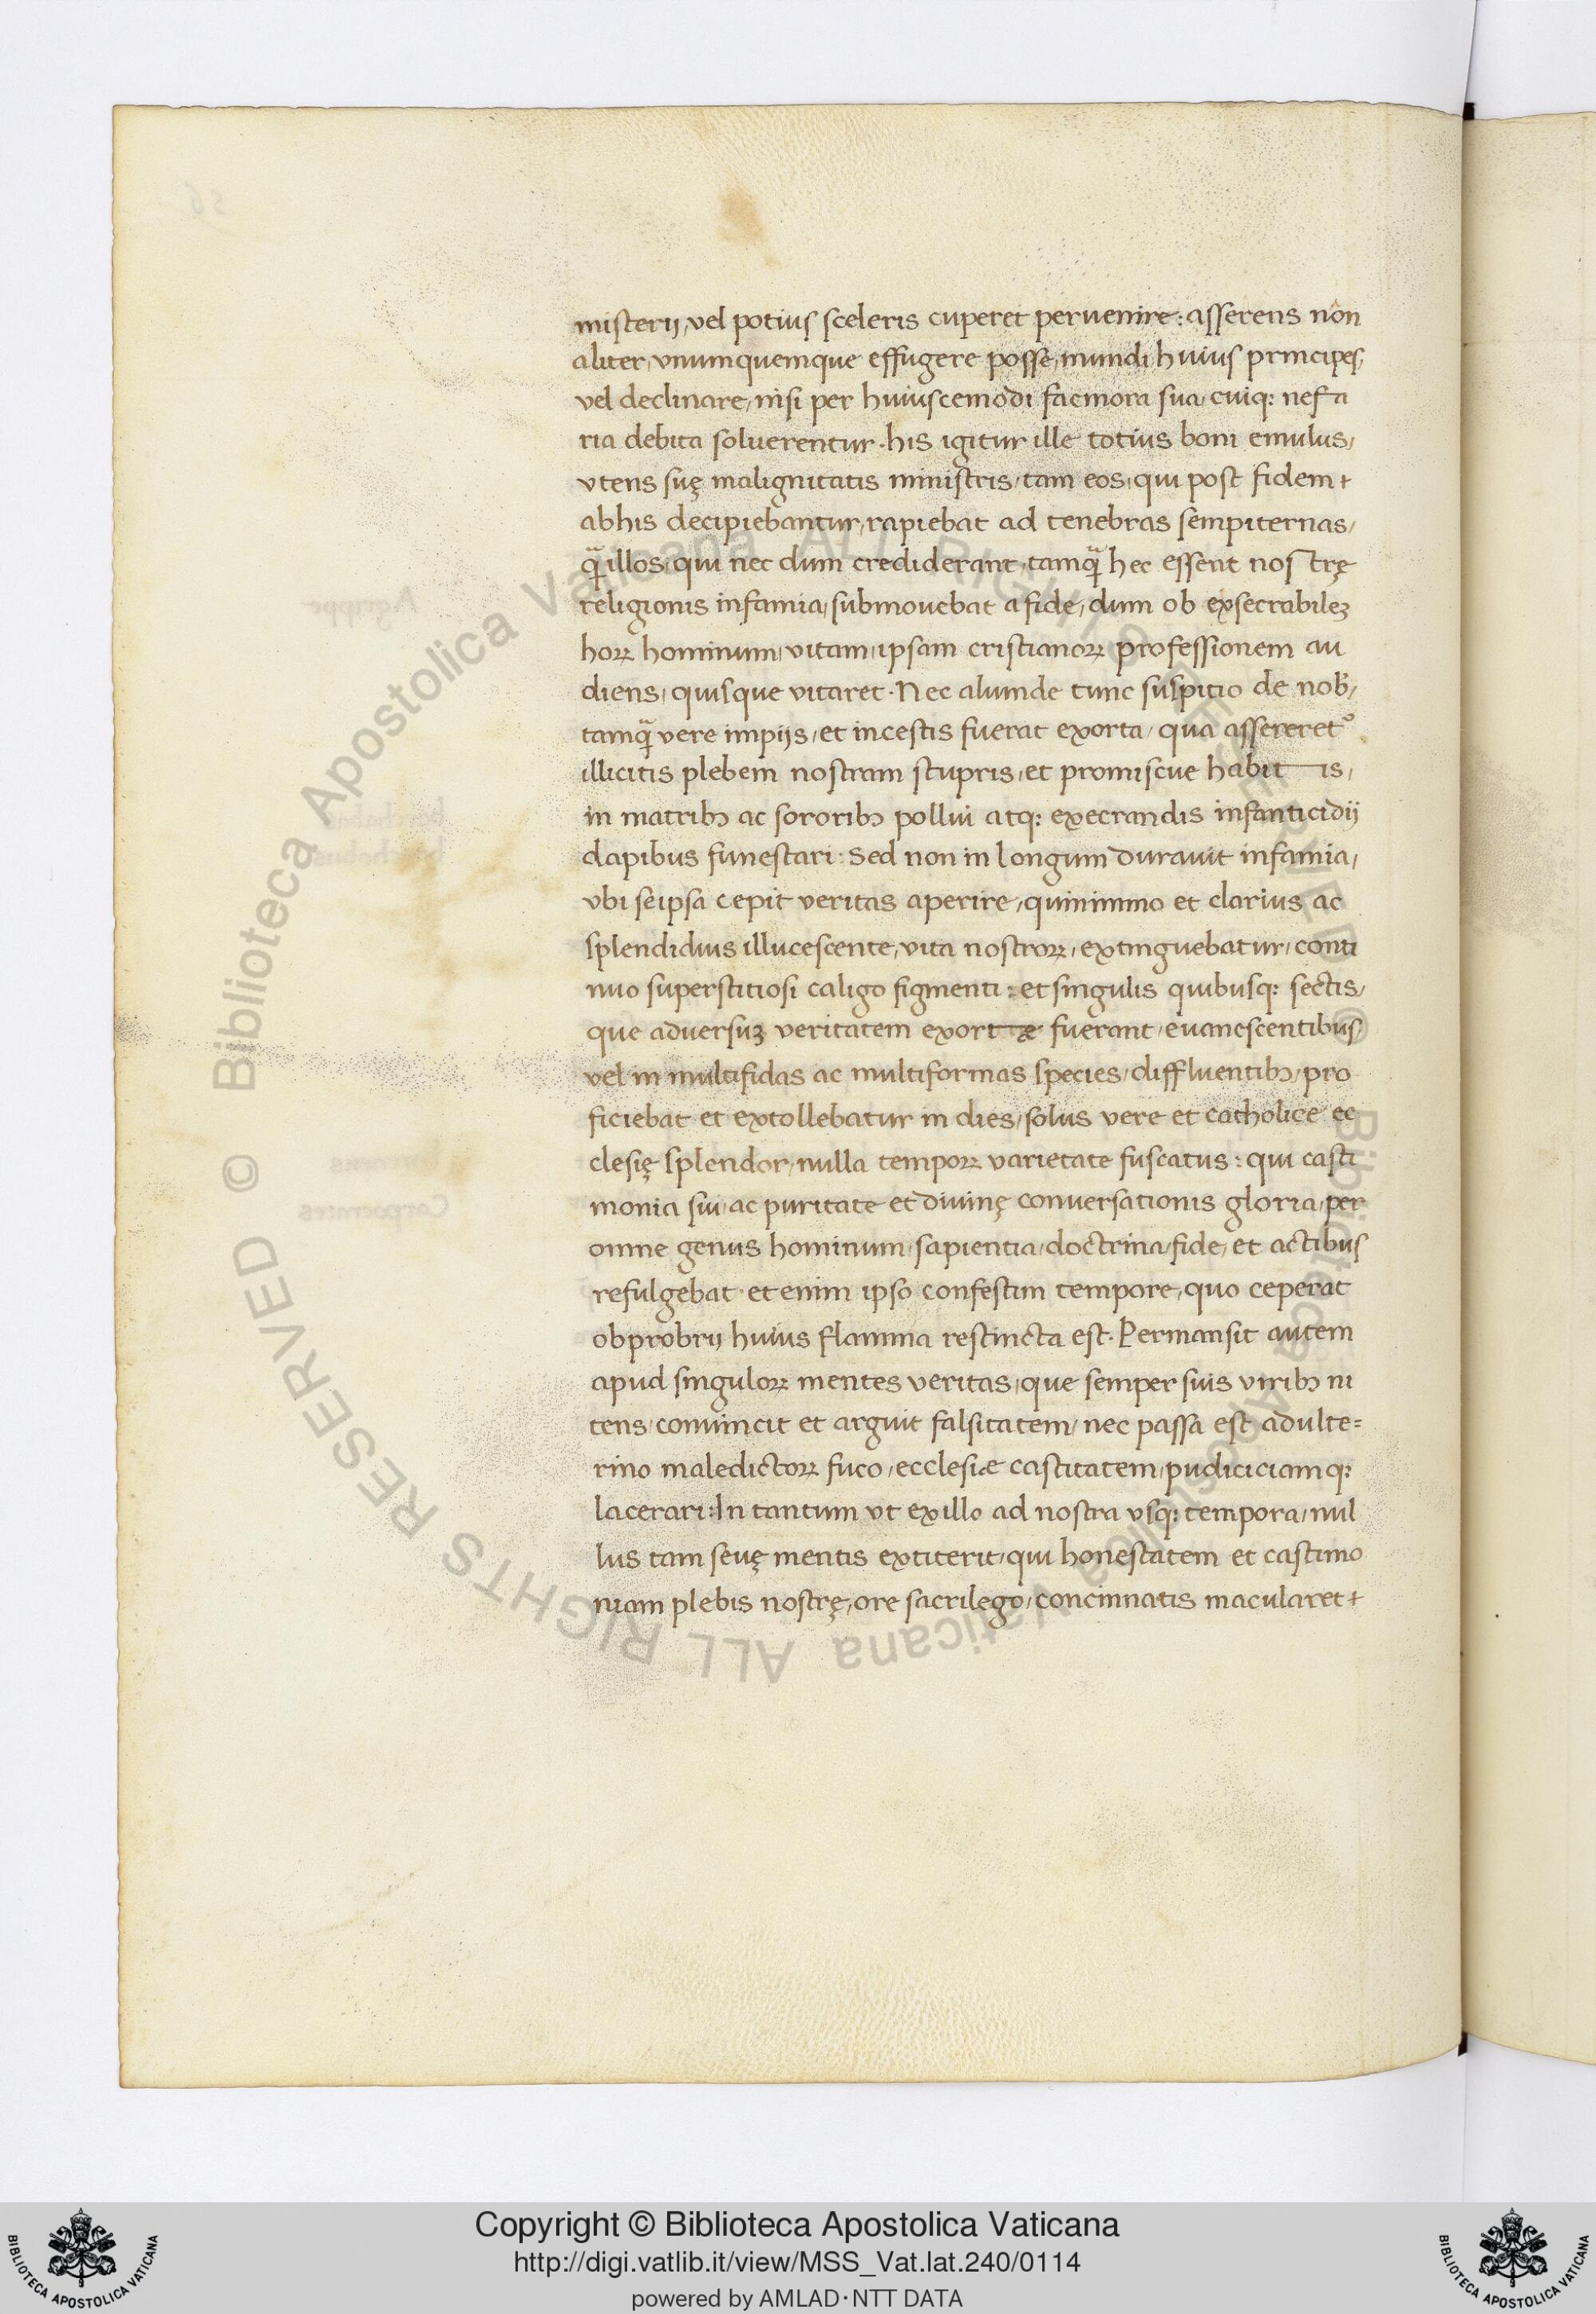 misterij, vel potius sceleris cuperet pervenire: asserens non
aliter, vnumquemque effugere posse, mundi huius principes,
vel declinare, nisi per huiuscemodi facinora sua, cuiq: nefa
ria debita soluerentur. his igitur ille totius boni emulus,
vtens suę malignitatis ministris, tam eos, qui post fidem +
abhis decipiebantur, rapiebat ad tenebras sempiternas,
q̃ illos, qui nec dum crediderant, tamq̃ hec essent nostrę
religionis infamia, submouebat a fide, dum ob exsecrabileʒ
hoꝝ hominum, vitam, ipsam cristianoꝝ professionem au
diens, quisque vitaret. Nec aliunde tunc suspitio de nob̃,
tamq̃ vere impijs, et incestis fuerat exorta, qua assereret᷒
illicitis plebem nostram stupris, et promiscue habitis,
in matribꝫ ac sororibꝫ pollui atq: execrandis infanticidij
dapibus funestari: Sed non in longum durauit infamia,
vbi seipsa cepit veritas aperire, quinimmo et clarius ac
splendidius illucescente, vita nostroꝝ, extinguebatur, conti
nuo superstitiosi caligo figmenti: et singulis quibusq: sectis,
que aduersuʒ veritatem exortæ fuerant, euanescentibus
vel in multifidas ac multiformas species, diffluentibꝫ, pro
ficiebat et extollebatur in dies, solus vere et catholice ec
clesię splendor, nulla tempoꝝ varietate fuscatus: qui casti
monia sui, ac puritate et diuinę conuersationis gloria, per
omne genus hominum, sapientia, doctrina, fide, et actibus
refulgebat. et enim ipso confestim tempore, quo ceperat
obprobrij huius flamma restincta est. Permansit autem
apud singuloꝝ mentes veritas, que semper suis viribꝫ ni
tens, conuincit et arguit falsitatem, nec passa est adulte=
rino maledictoꝝ fuco, ecclesiæ castitatem, pudiciciamq:
lacerari: In tantum vt exillo ad nostra vsq: tempora, nul
lus tam seuę mentis extiterit, qui honestatem et castimo
niam plebis nostrę, ore sacrilego, concinnatis macularet +
Copyright © Biblioteca Apostolica Vaticana
http://digi.vatlib.it/view/MSS_Vat.lat.240/0114
powered by AMLAD·NTT DATA
BIBLIOTECA APOSTOLICA VATICANA
BIBLIOTECA APOSTOLICA VATICANA
© Biblioteca Apostolica Vaticana ALL RIGHTS RESERVED © Biblioteca Apostolica Vaticana ALL RIGHTS RESERVED